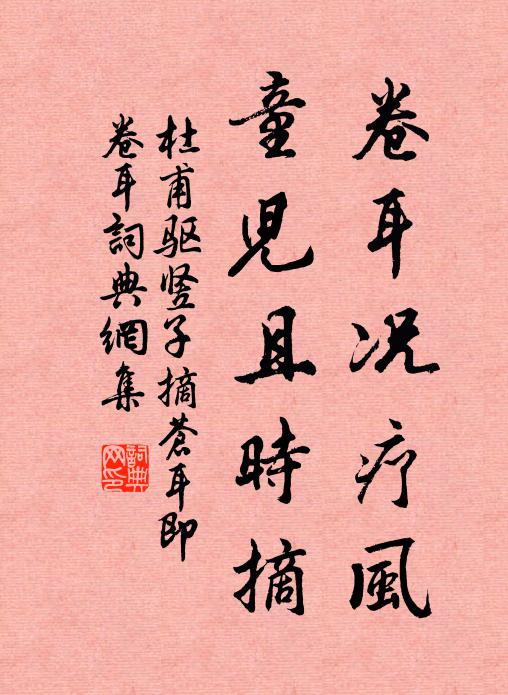 卷耳况疗風
童児且時摘
杜甫驱竖子摘蒼耳即
卷耳詞典網集
詞典
网印